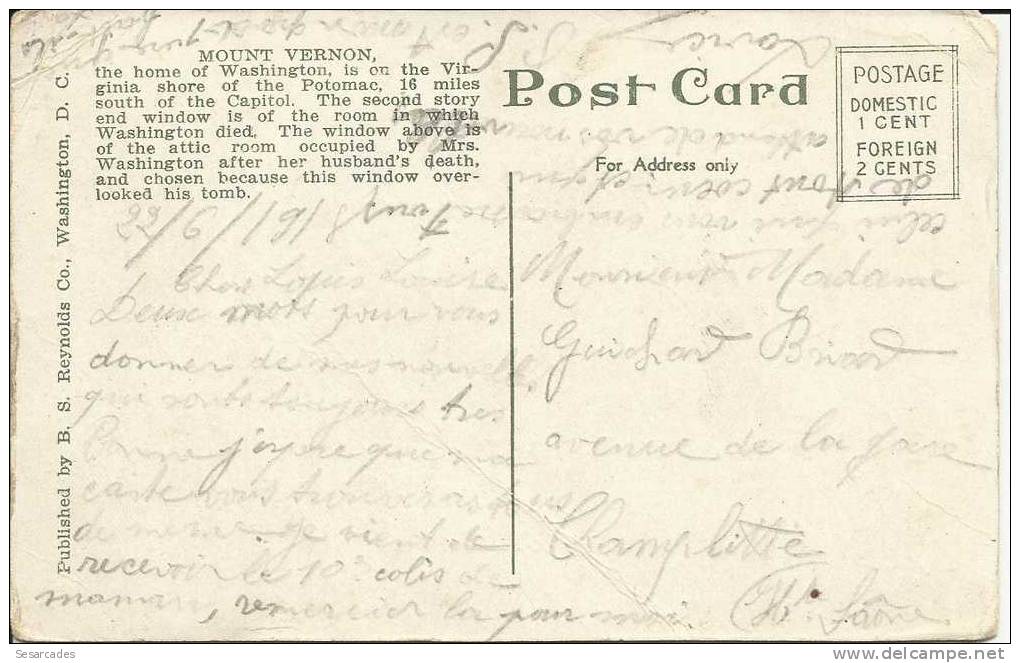 MOUNT VERNON,
the home of Washington, is on the Vir-
ginia shore of the Potomac, 16 miles
south of the Capitol. The second story
end window is of the room in which
Washington died. The window above is
of the attic room occupied by Mrs.
Washington after her husband's death,
and chosen because this window over-
looked his tomb.
Published by B. S. Reynolds Co., Washington, D. C.
Post Card
For Address only
POSTAGE
DOMESTIC
1 CENT
FOREIGN
2 CENTS
22/9/1918
Louise
Deux mots pour vous
donner de mes nouvelles
qui sont toujours très
Bonne j'espère que ma
carte vous trouveras
de même je vient de
recevoir le 10e colis de
maman, remercier la pour moi.
celui qui vous embrasse tous
de tout coeur et qui
attend de vos nouvelles
Monsieur Madame
Guichard Briard
avenue de la gare
Champlitte
Hte Saône
SESARCADES
delcampe.net